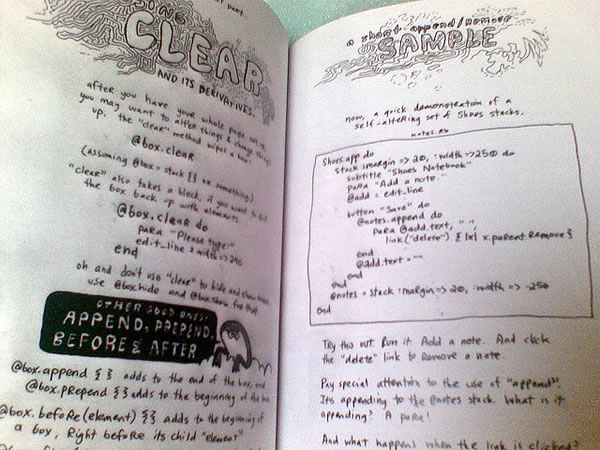 USING
CLEAR
AND ITS DERIVATIVES.
after you have your whole page set up,
you may want to alter things & change things
up. the "clear" method wipes a box.
@box.clear
(assuming @box = stack {} or something.)
"clear" also takes a block, if you want to fill
the box back up with elements
@box.clear do
para "Please type:"
edit_line :width => 290
end
oh and don't use "clear" to hide and show
use @box.hide and @box.show for that
OTHER GOOD ONES:
APPEND, PREPEND,
BEFORE & AFTER
@box.append {} adds to the end of the box, and
@box.prepend {} adds to the beginning of the box
@box.before(element) {} adds to the beginning of
a box, right before its child "element"
a short append/remove
SAMPLE
now, a quick demonstration of a
self-altering set of Shoes stacks.
notes.rb
Shoes.app do
stack :margin => 20, :width => 250 do
subtitle "Shoes Notebook"
para "Add a note."
@add = edit_line
button "Save" do
@notes.append do
para @add.text, " ",
link("delete") { |x| x.parent.remove }
end
@add.text = ""
end
end
@notes = stack :margin => 20, :width => -250
end
Try this out. Run it. Add a note. And click
the "delete" link to remove a note.
Pay special attention to the use of "append".
It's appending to the @notes stack. What is it
appending? A para!
And what happens when the link is clicked?